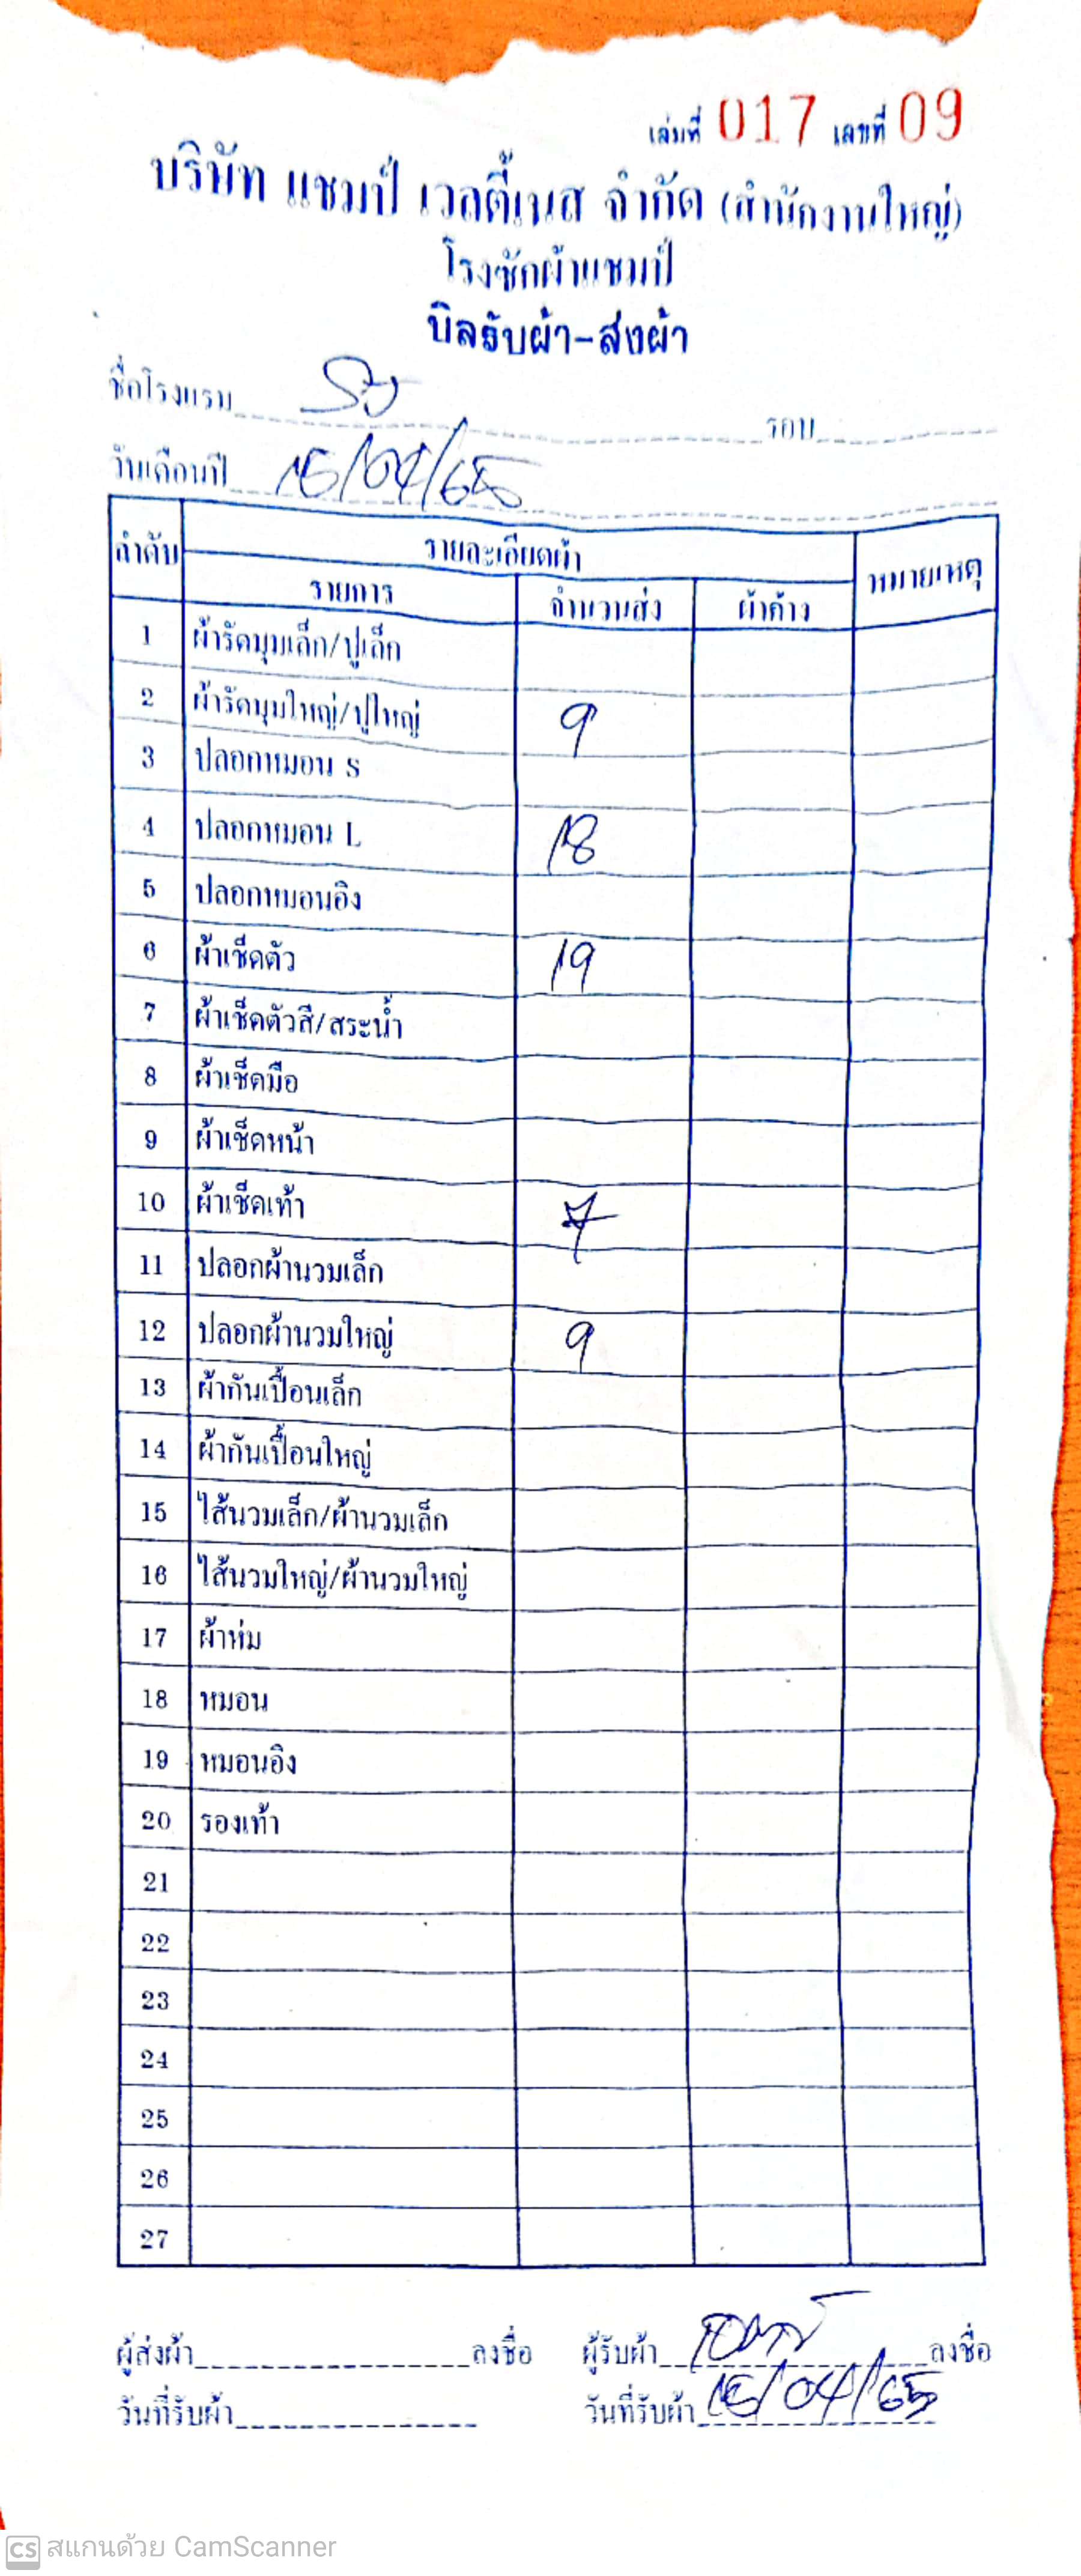 เล่มที่ 017 เลขที่ 09
บริษัท แชมป์ เวลตี้เนส จำกัด (สำนักงานใหญ่)
โรงซักผ้าแชมป์
บิลรับผ้า-ส่งผ้า
ชื่อโรงแรม รอบ
วันเดือนปี 15/04/65
ลำดับ รายละเอียดผ้า หมายเหตุ
รายการ จำนวนส่ง ผ้าค้าง
1 ผ้ารัดมุมเล็ก/ปูเล็ก
2 ผ้ารัดมุมใหญ่/ปูใหญ่ 9
3 ปลอกหมอน S
4 ปลอกหมอน L 18
5 ปลอกหมอนอิง
6 ผ้าเช็ดตัว 19
7 ผ้าเช็ดตัวสี/สระน้ำ
8 ผ้าเช็ดมือ
9 ผ้าเช็ดหน้า
10 ผ้าเช็ดเท้า 7
11 ปลอกผ้านวมเล็ก
12 ปลอกผ้านวมใหญ่ 9
13 ผ้ากันเปื้อนเล็ก
14 ผ้ากันเปื้อนใหญ่
15 ไส้นวมเล็ก/ผ้านวมเล็ก
16 ไส้นวมใหญ่/ผ้านวมใหญ่
17 ผ้าห่ม
18 หมอน
19 หมอนอิง
20 รองเท้า
21
22
23
24
25
26
27
ผู้ส่งผ้า ลงชื่อ ผู้รับผ้า ลงชื่อ
วันที่รับผ้า วันที่รับผ้า 15/04/65
CS สแกนด้วย CamScanner